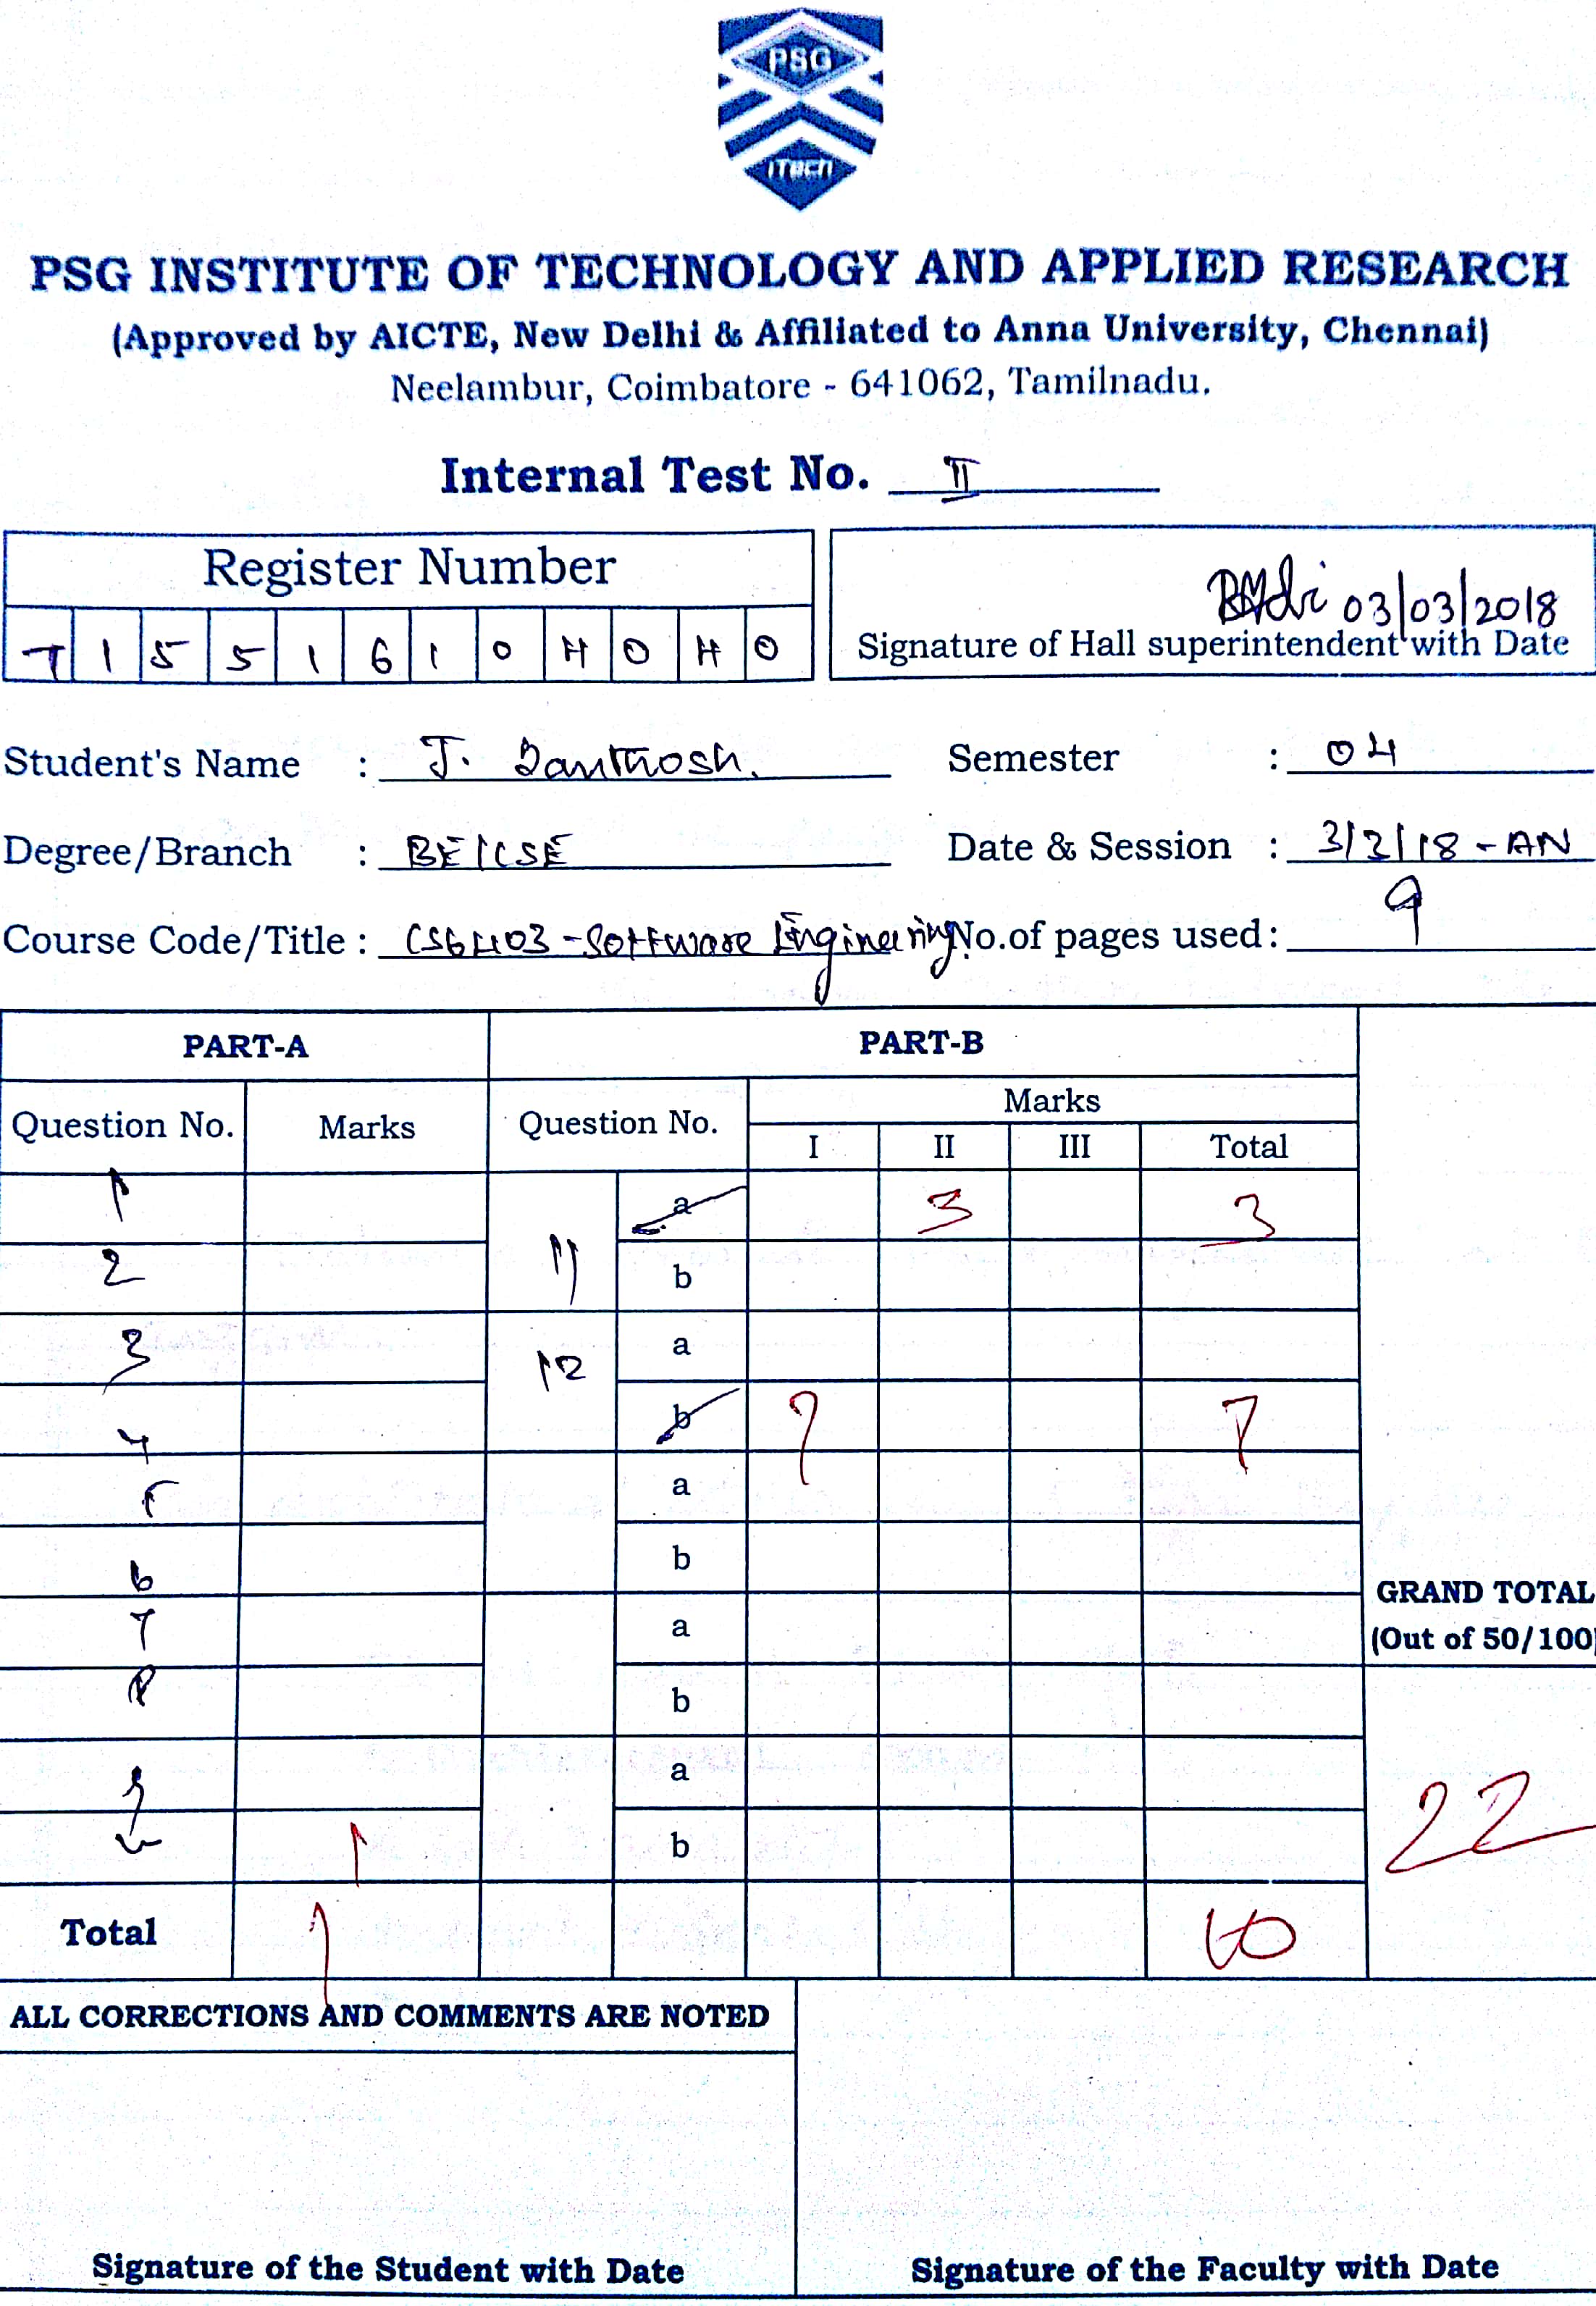 PSG
iTECH
PSG INSTITUTE OF TECHNOLOGY AND APPLIED RESEARCH
(Approved by AICTE, New Delhi & Affiliated to Anna University, Chennai)
Neelambur, Coimbatore - 641062, Tamilnadu.
Internal Test No. II
Register Number
7 1 5 5 1 6 1 0 4 0 4 0
03/03/2018
Signature of Hall superintendent with Date
Student's Name : J. Santhosh. Semester : 04
Degree/Branch : BE/CSE Date & Session : 3/3/18 - AN
Course Code/Title : CS6403 - Software Engineering No.of pages used: 9
PART-A PART-B
Question No. Marks Question No. Marks
I II III Total
1 11 a 3 3
2 b
3 12 a
4 b 7 7
5 a
6 b
7 a
8 b
9 a
b
GRAND TOTAL
(Out of 50/100)
22
Total 10
ALL CORRECTIONS AND COMMENTS ARE NOTED
Signature of the Student with Date Signature of the Faculty with Date